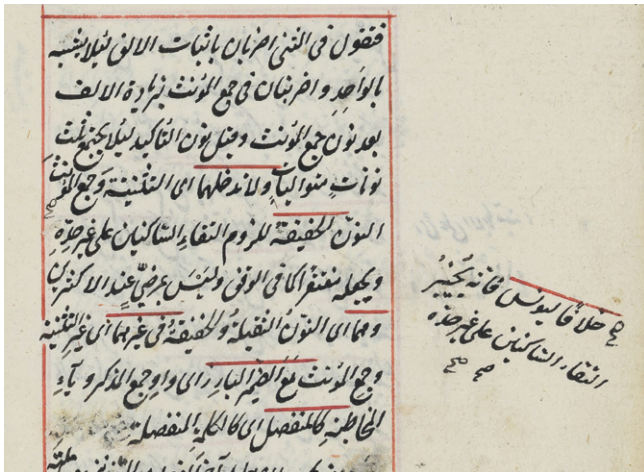 فتقول فى المثنى اضربان باثبات الالف لئلا يشتبه
بالواحد واضربنان فى جمع المؤنث بزيادة الالف
بعد نون جمع المؤنث وقبل نون التاكيد لئلا يجتمع ثلث
نونات متواليات ولا تدخلهما اى التثنية وجمع المؤنث
النون الخفيفة للزوم التقاء الساكنين على غير حده
ويجعله مغتفرا كما فى الوقف وليس بمرضى عند الاكثرين
وهما اى النون الثقيلة والخفيفة فى غيرهما اى غير التثنية
وجمع المؤنث مع الضمير البارز اى واو جمع المذكر وياء
المخاطبة كالمنفصل اى كالكلمة المنفصلة
خلافا ليونس فانه يجيز
التقاء الساكنين على غير حده
صح صح